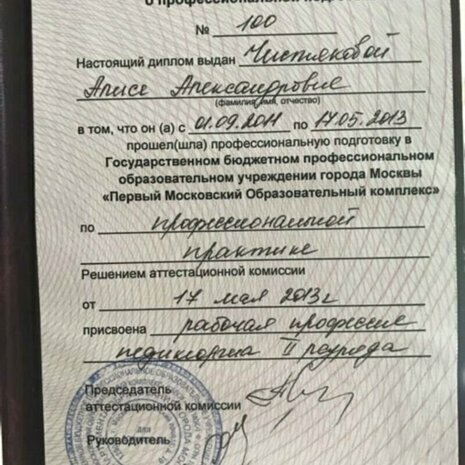 о профессиональной подго
№ 100
Настоящий диплом выдан Чистяковой
Алисе Александровне
(фамилия, имя, отчество)
в том, что он (а) с 01.09.2011 по 17.05.2013
прошел(шла) профессиональную подготовку в
Государственном бюджетном профессиональном
образовательном учреждении города Москвы
«Первый Московский Образовательный комплекс»
по профессиональной
практике
Решением аттестационной комиссии
от 17 мая 2013г
присвоена рабочая профессия
педикюрша II разряда
Председатель
аттестационной комиссии
Руководитель